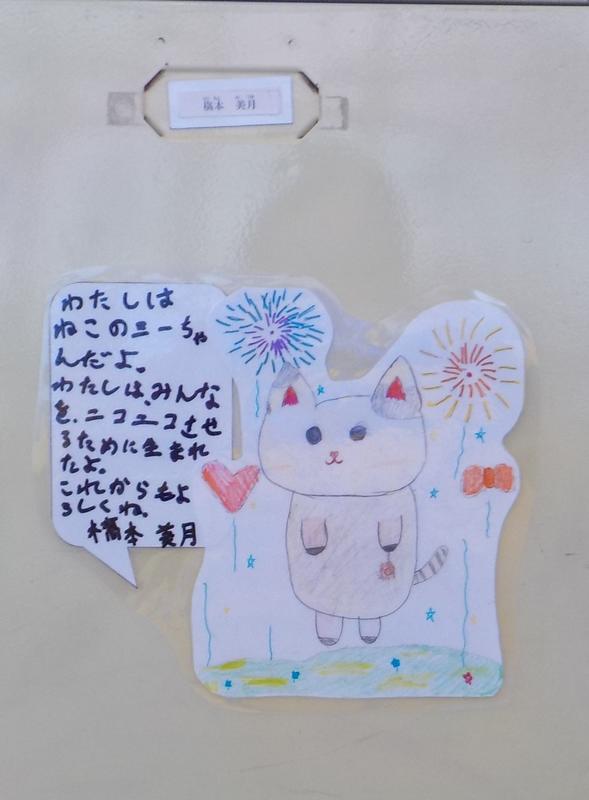 橋本 美月
わたしは
ねこのミーちゃ
んだよ。
わたしは、みんな
を、ニコニコさせ
るために生まれ
たよ。
これからもよ
ろしくね。
橋本 美月